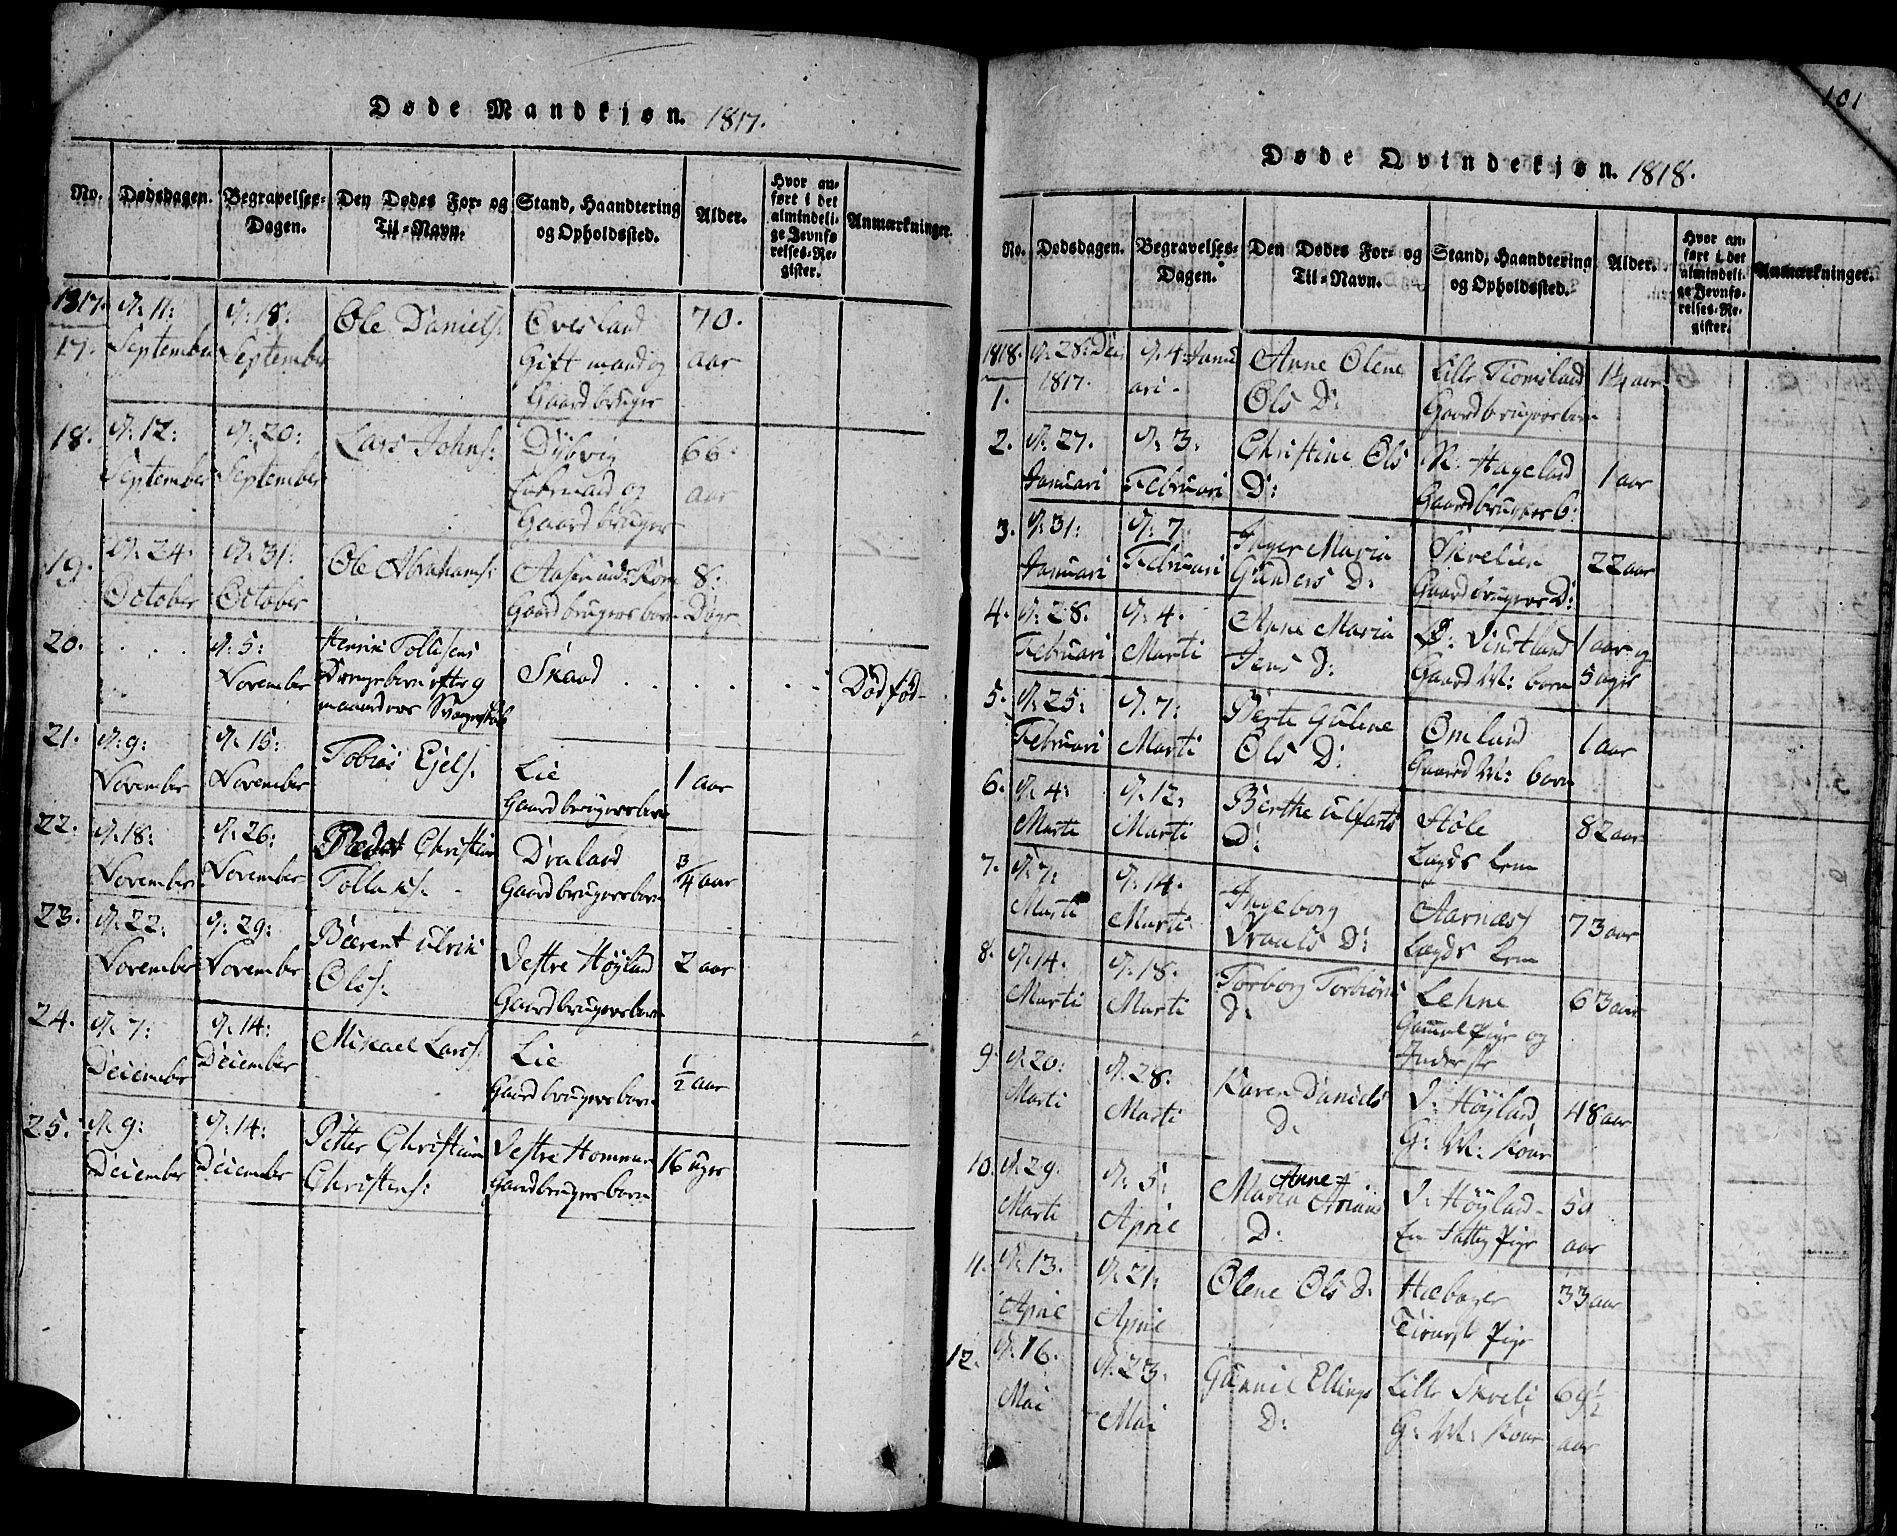 Døde Mandkjøn. 1817.
No. Dødsdagen. Begravelses-Dagen. Den Dødes For- og Til-Navn. Stand, Haandtering og Opholdssted. Alder. Hvor anført i det almindelige Jevnførelses-Register. Anmærkninger.
1817. 17. d. 11: September d. 18: September Ole Daniels. Ovesland Gift mand og Gaardbruger 70. aar
18. d. 12: September d. 20: September Lars Johns: Dybvig Enkemand og Gaardbruger 66. aar
19. d. 24. October d. 31: October Ole Abrahams: Gaardbrugers barn 8. Dage
20. d. 5: November Tollefsens Drengebarn efter 9 maaneders Skaad Død fød
21. d. 9: November d. 15: November Tobias Ejels. Lie Gaardbrugers barn 1 aar
22. d. 18: November d. 26: November Christian Tollags. Draland Gaardbrugers barn 3/4 aar
23. d. 22: November d. 29: November Bærent Ulrik Ols. Vestre Høyland Gaardbrugers barn 2 aar
24. d. 7: December d. 14: December Mikael Lars. Lie Gaardbrugers barn 1/2 aar
25. d. 9: December d. 14: December Petter Christian Christens: Vestre Homme Gaardbrugers barn 16 uger
101
Døde Qvindekjøn. 1818.
No. Dødsdagen. Begravelses-Dagen. Den Dødes For- og Til-Navn. Stand, Haandtering og Opholdssted. Alder. Hvor anført i det almindelige Jevnførelses-Register. Anmærkninger.
1818. 1. d. 28: Dec 1817. d. 4: Januari Anne Olene Ols D: Lille Tiomsland Gaardbrugers barn 1 1/4 aar
2. d. 27. Januari d. 3. Februari Christine Ols D: N: Hageland Gaardbrugers b: 1 aar
3. d. 31: Januari d. 7. Februari Inger Maria Gunders D: Skrelien Gaardbrugers D: 22 aar
4. d. 28. Februari d. 4. Marti Anne Maria Jens D: Gaard M: barn 1 aar og 5 uger
5. d. 25: Februari d. 7: Marti Berte Guline Ols D: Omland Gaard M: barn 1 aar
6. d. 4: Marti d. 12: Marti Berthe D: Høle Lægds Lem 82 aar
7. d. 7: Marti d. 14. Marti Ingeborg D: Aarnæs Lægds Lem 73 aar
8. d. 14. Marti d. 18. Marti Torborg Torbiørns D: Lehne Gammel Pige og Inderste 63 aar
9. d. 20: Marti d. 28. Marti Karen Daniels D. V: Høyland G: M: Kone 48 aar
10. d. 29. Marti d. 5: April Anne Maria D: V: Høyland En Fattig Pige 50 aar
11. d. 13. April d. 21: April Olene Ols D. Tieneste Pige 33 aar
12. d. 16. Mai d. 23. Mai Gunnil Ellings D: Lille Skreli G: M: Kone 69 1/2 aar